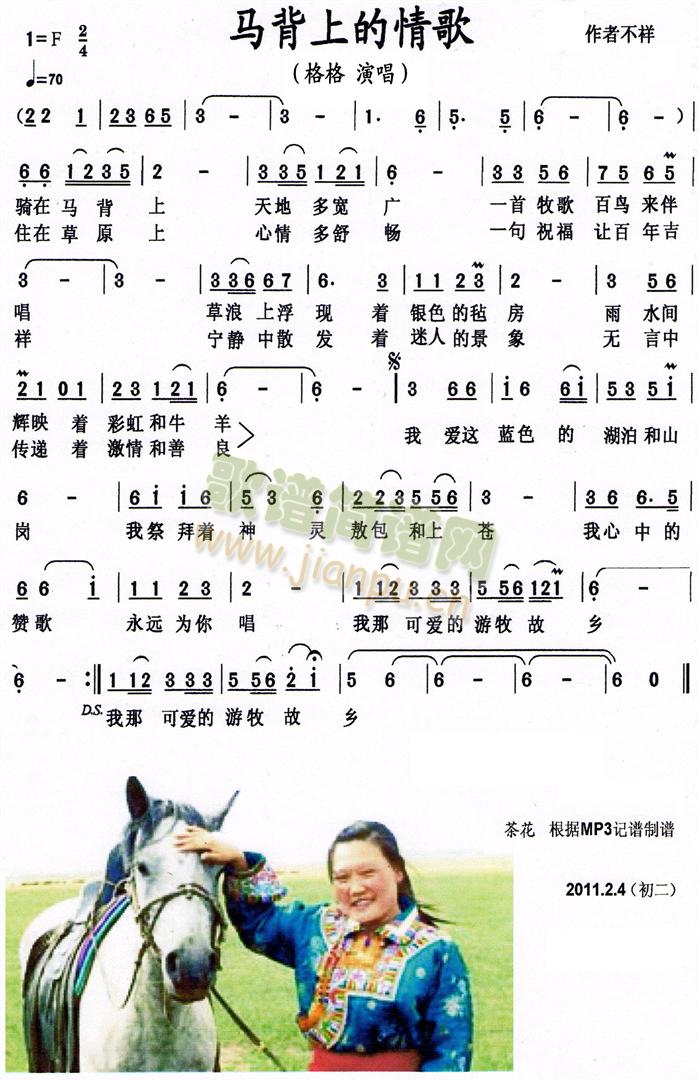 马背上的情歌
1=F 2/4
作者不祥
（格格 演唱）
♩=70
（22 1 | 23 65 | 3 - | 3 - | 1. 6 | 5. 5 | 6 - | 6 - ） |
66 1235 | 2 - | 335 121 | 6 - | 33 56 | 75 65 |
骑在 马 背 上 天地 多宽 广 一首 牧歌 百鸟 来伴
住在 草 原 上 心情 多舒 畅 一句 祝福 让百 年吉
3 - | 3 - | 336 67 | 6. 3 | 11 23 | 2 - | 3 56 |
唱 草浪 上浮 现 着 银色 的毡 房 雨 水间
祥 宁静 中散 发 着 迷人 的景 象 无 言中
21 01 | 23 121 | 6 - | 6 - | 3 66 | i6 6i | 535 5i |
辉映 着 彩虹 和牛 羊
传递 着 激情 和善 良
我 爱这 蓝色 的 湖泊 和山
6 - | 6i i6 | 53 6 | 2235 556 | 3 - | 36 6.5 |
岗 我祭 拜着 神 灵 敖包 和上 苍 我心 中的
66 i | 11 23 | 2 - | 112 333 | 556 121 | 6 - |
赞歌 永远 为你 唱 我那 可爱的 游牧 故 乡
6 - :‖ 112 333 | 556 2i | 5 6 | 6 - | 6 - | 6 0 ‖
D.S. 我那 可爱的 游牧 故 乡
歌谱简谱网
www.jianpu.cn
茶花 根据MP3记谱制谱
2011.2.4（初二）